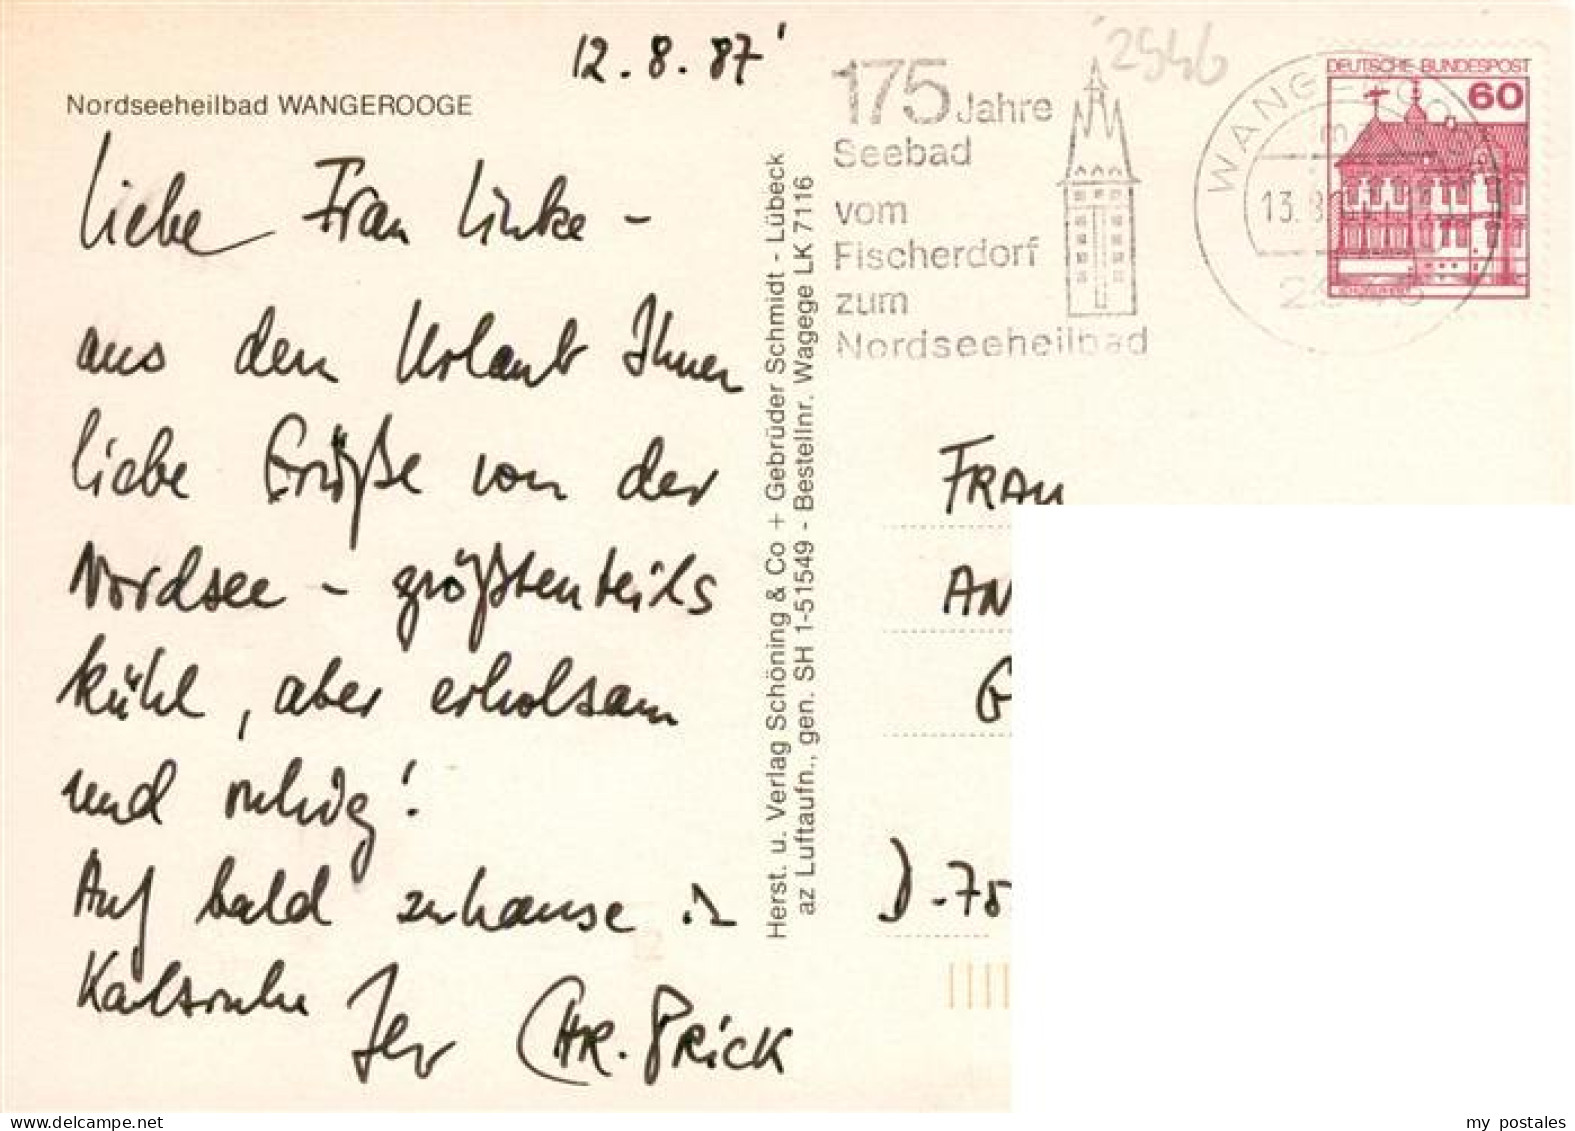 12.8.87
Nordseeheilbad WANGEROOGE
Liebe Frau Linke -
aus dem Urlaub Ihnen
liebe Grüße von der
Nordsee - größtenteils
kühl, aber erholsam
und ruhig!
Auf bald zuhause in
Karlsruhe Ihr CHR. PRICK
Herst. u. Verlag Schöning & Co + Gebrüder Schmidt - Lübeck
az Luftaufn., gen. SH 1-51549 - Bestellnr. Wagege LK 7116
175 Jahre
Seebad
vom
Fischerdorf
zum
Nordseeheilbad
2946
DEUTSCHE BUNDESPOST
60
FRAU
AN
G
D-75
my postales